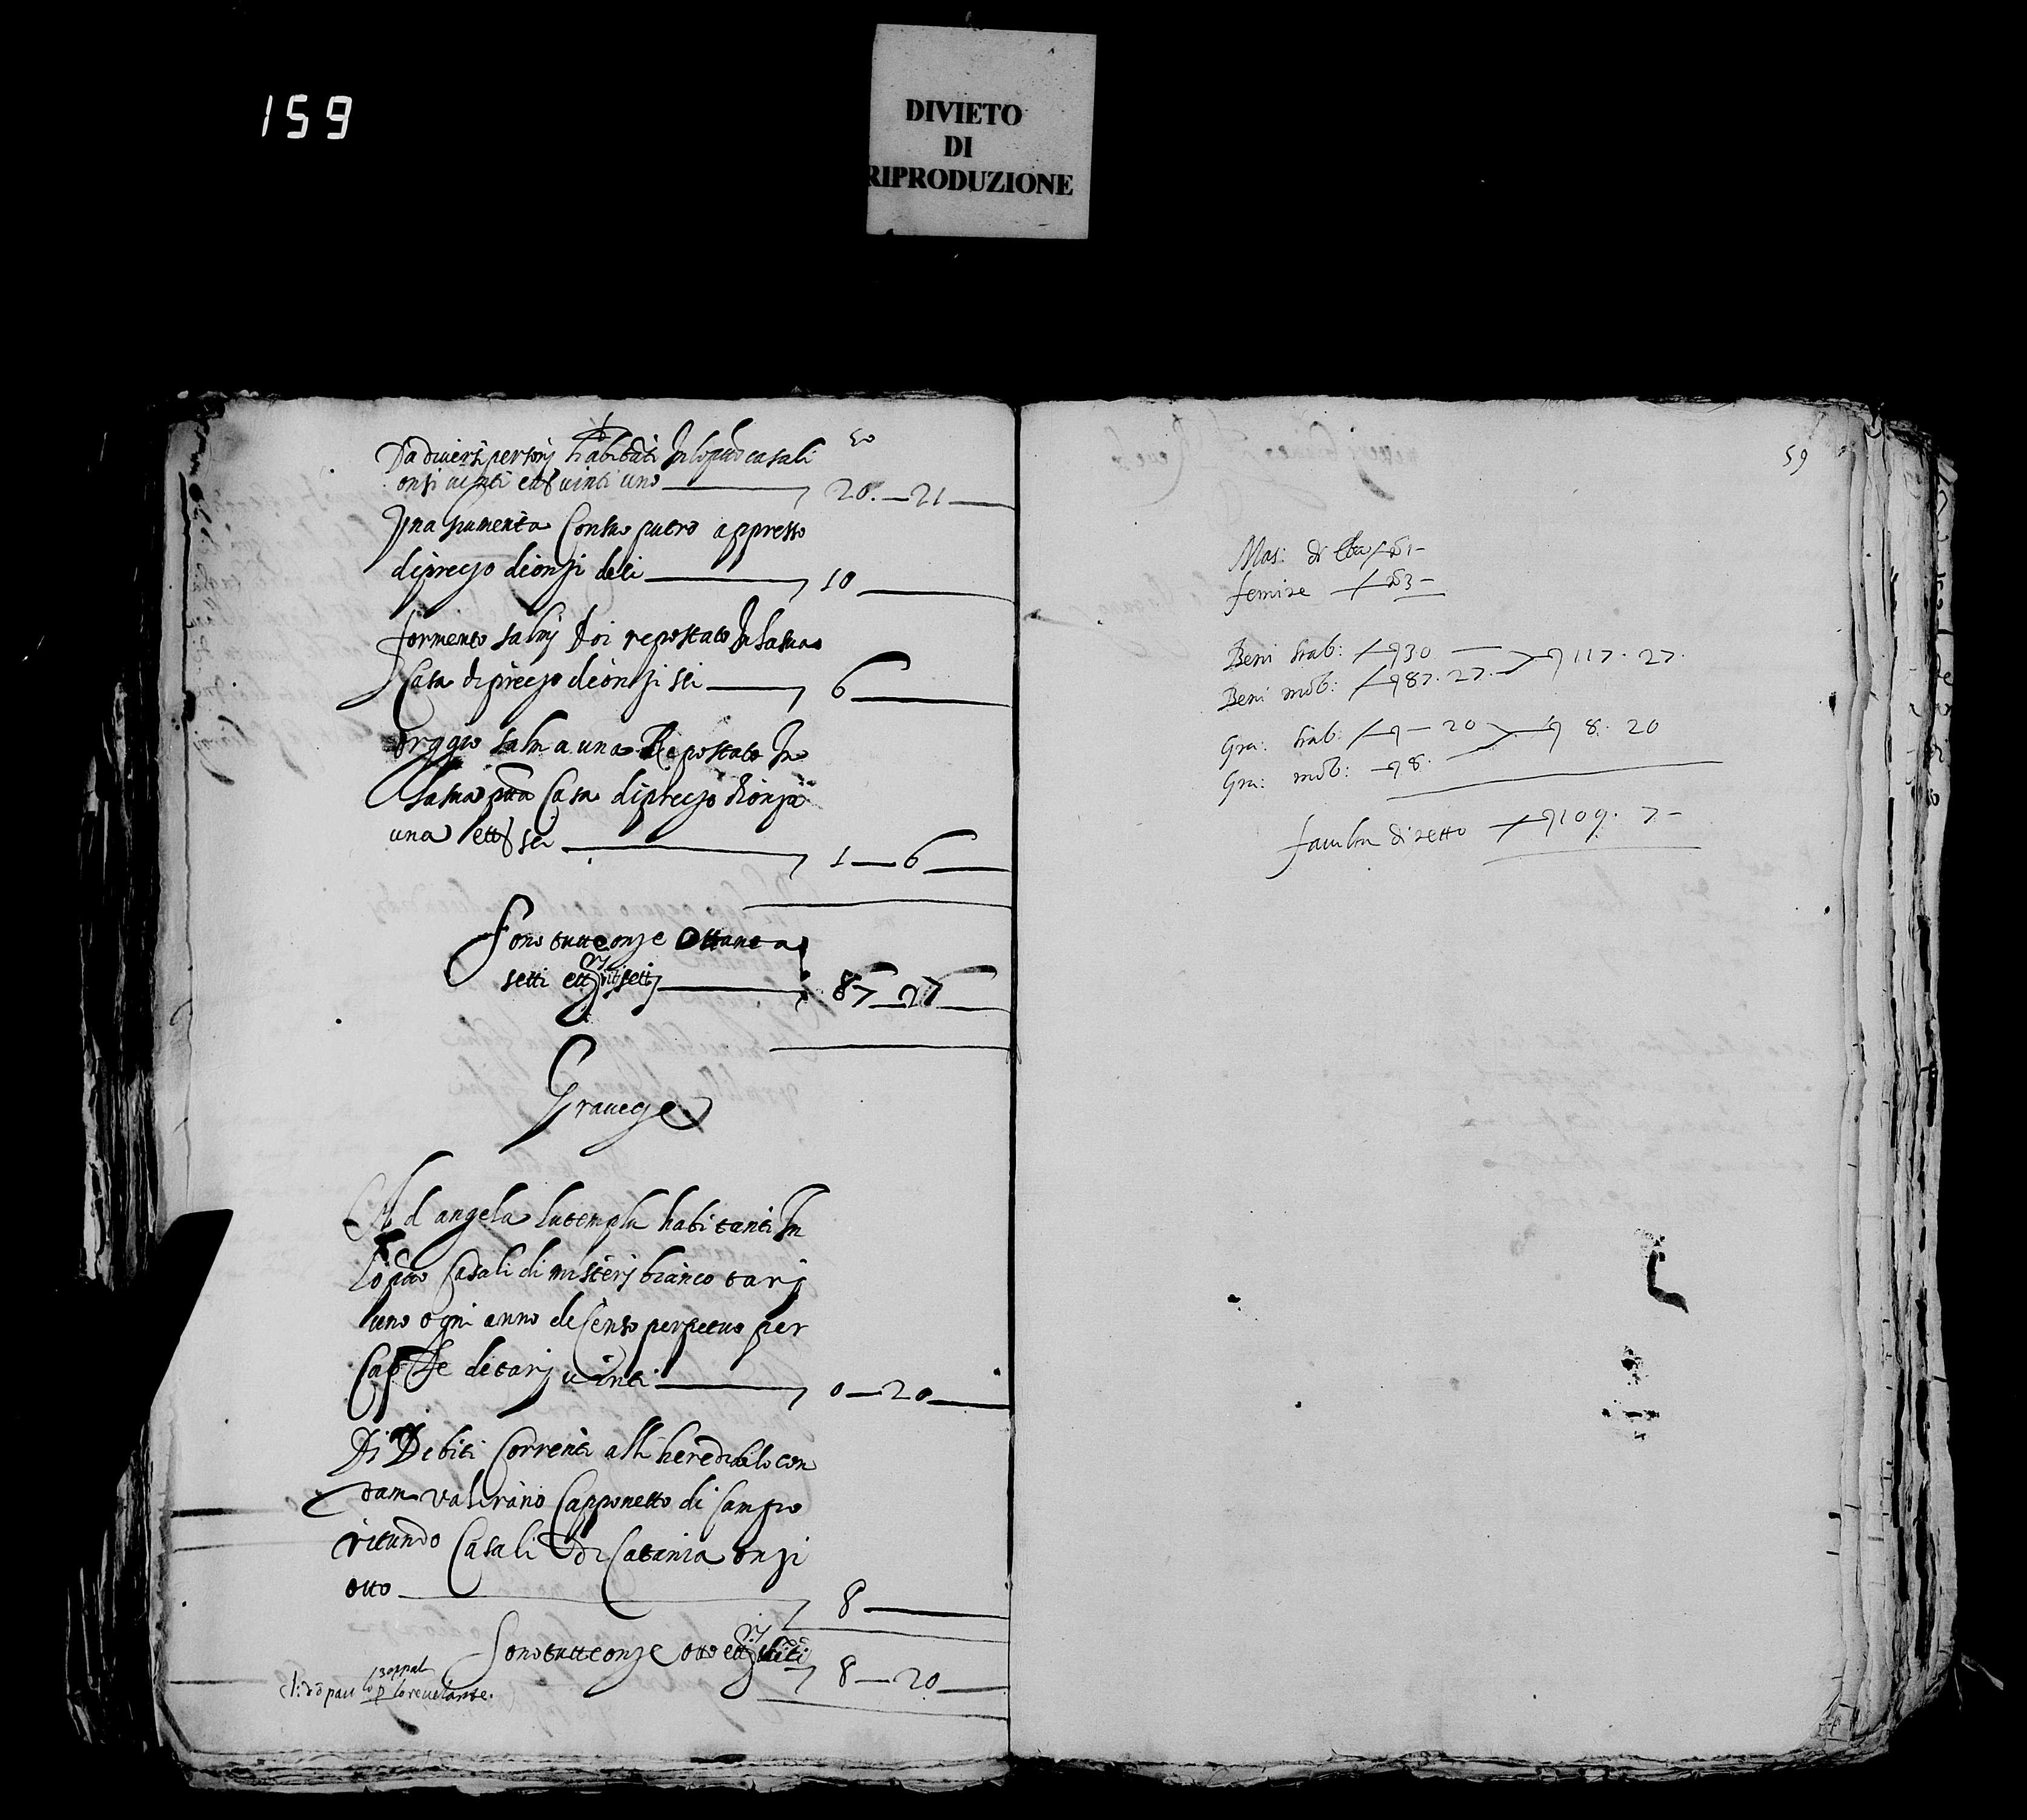 159
DIVIETO
DI
RIPRODUZIONE
Da diversi personj habitāti In lo p̄tto casali
onsi uinti et uinti uno 20.—21
Una Jumenta Con suo putro appresso
di preczo di onzi deci 10
formento salmj Doi repostato In la sua
Casa di preczo di onzi sei 6
orggio salma una Repostato In
la sua p̄tta Casa di preczo di onza
una et sei 1—6
Sono tutte onze Ottanta
setti et setti 87—27
Graueze
Ad angela habitanti In
lo p̄tto Casali di misterj bianco tarj
uno ogni anno di Censo perpetuo per
Cap̄le di tarj uinti 0—20
Di Debiti Correnti alli heredi di lo con
dam valirano Capponetto di San gio
Casali di Catania onzi
otto 8
Sono tutte onze otto et 8—20
lo revelante.
59
Mas: di
femine 3—
Beni stab: 30 — 117. 27.
Beni mob: 87. 27.
Gra: stab: — 20 8. 20
Gra: mob: 8.
109. 7—